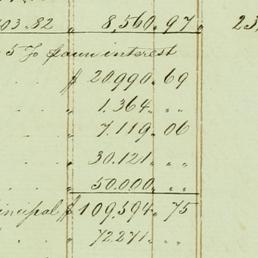 03.82 " 8,560.97 " 23,
5 % interest
$ 20990.69
" 1.364. " "
" 7.119.06
" 30.121. " "
" 50.000. " "
incipal $ 109594.75
" 72271. " "